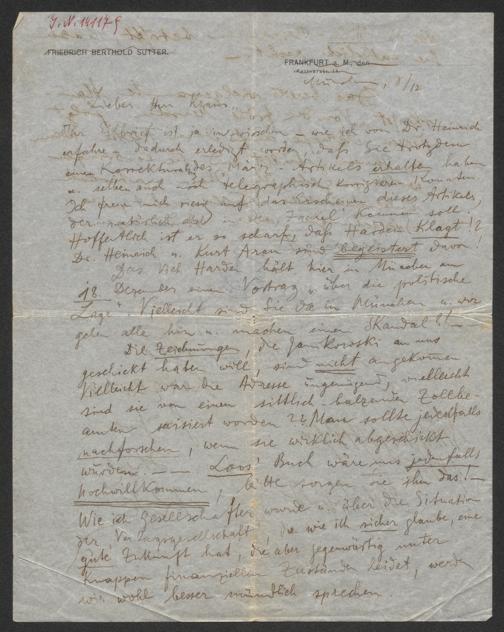 J. N. 141179
FRIEDRICH BERTHOLD SUTTER.
FRANKFURT a. M., den
München, 8/12
Lieber Herr Kraus,
Ihr Brief ist ja inzwischen – wie ich von Dr. Heinrich
erfahre – dadurch erledigt worden, daß Sie trotzdem
einen Korrektur des März-Artikels erhalten haben
u. selben auch noch telegraphisch korrigieren konnten
Ich freue mich riesig auf das Erscheinen dieses Artikels,
der natürlich in der Fackel kommen soll
Hoffentlich ist er so scharf, daß Harden klagt!?
Dr. Heinrich u. Kurt Aram sind begeistert davon!
Das Vieh Harden hält hier in München am
18. Dezember einen Vortrag „über die politische
Lage“. Vielleicht sind Sie da in München u. wir
gehen alle hin u. machen einen Skandal!! –
Die Zeichnungen, die Janikowski an uns
geschickt haben will, sind nicht angekommen
Vielleicht war die Adresse ungenügend, vielleicht
sind sie von einem sittlich balzenden Zollbe-
amten saisiert worden?! Man sollte jedenfalls
nachforschen, wenn sie wirklich abgeschickt
wurden. — — Loos' Buch wäre uns jedenfalls
hochwillkommen, bitte sorgen Sie für das! –
Wie ich Gesellschafter wurde u. über die Situation
der Verlagsgesellschaft, die wie ich sicher glaube, eine
gute Zukunft hat, die aber gegenwärtig unter
knappen finanziellen Zuständen leidet, werden
wir wohl besser mündlich sprechen.